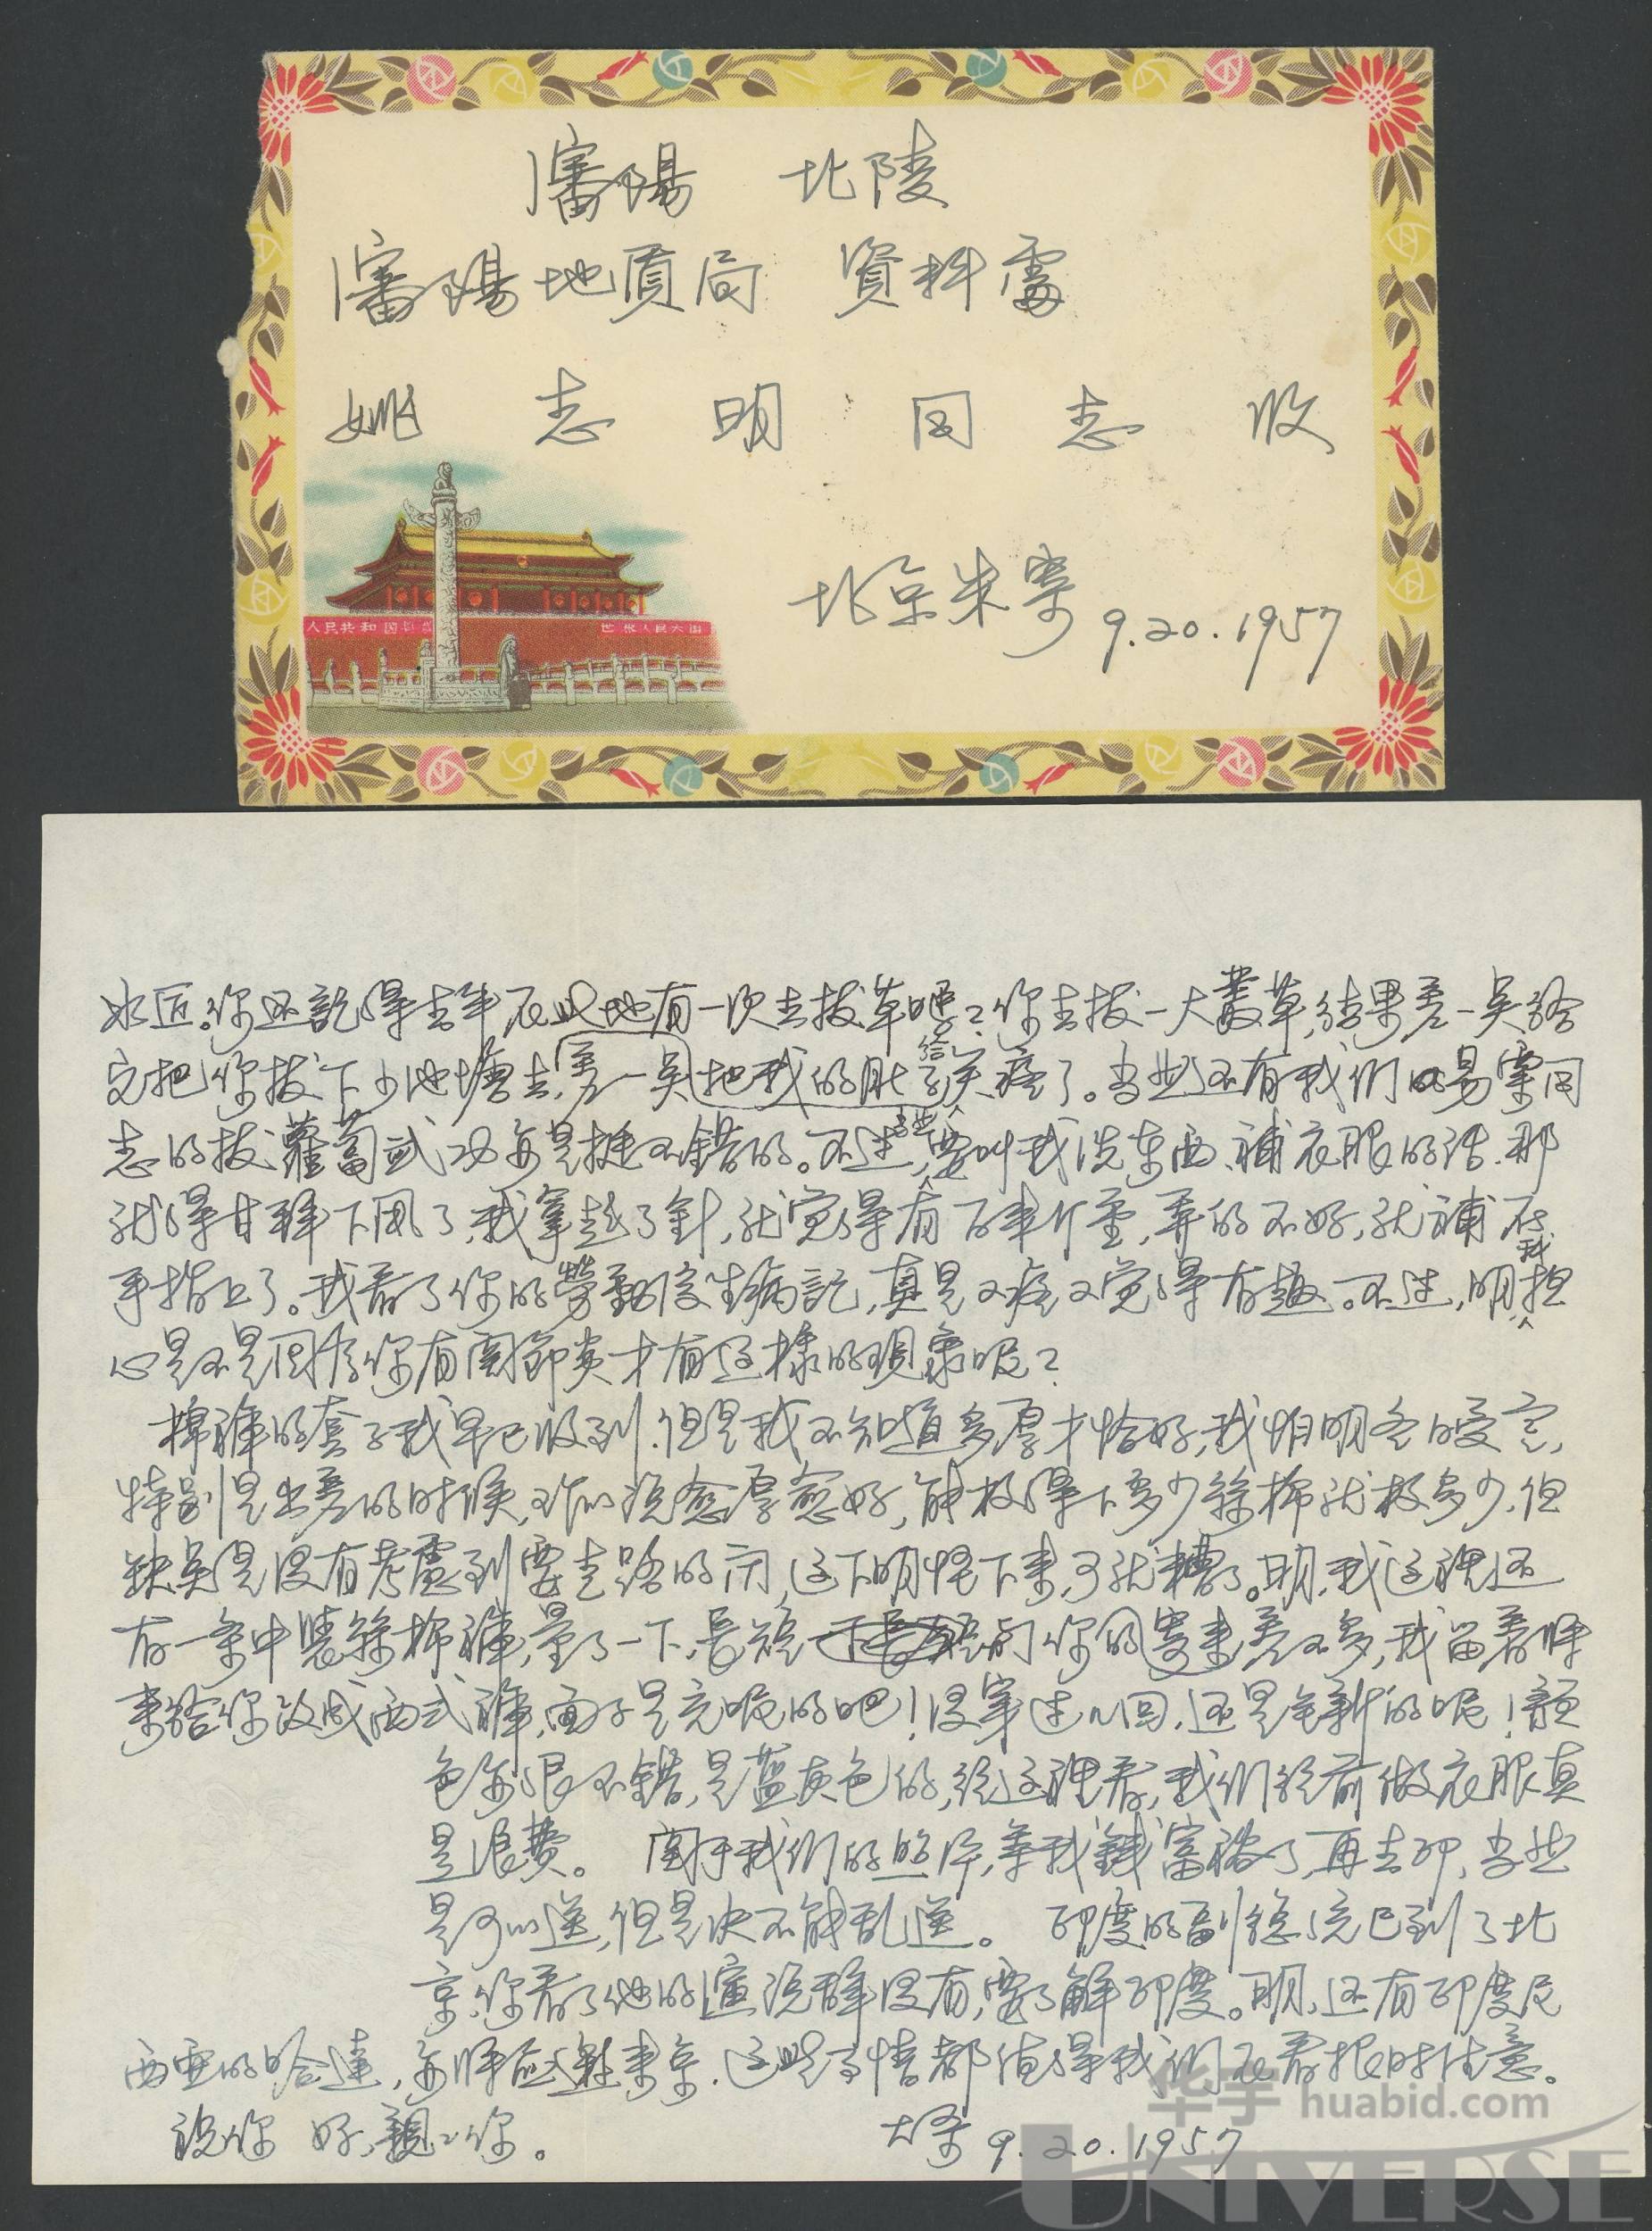 瀋陽 北陵
瀋陽地質局 資料處
姚志明同志收
人民共和国
世界人民大团
北京朱寄 9.20.1957
你还記得去年在此地有一次去拔草吧?你去拔一大叢草,結果差一点给
它把你拔下少池塘去,差一点把我的肚子给笑痛了。当然还有我们的易寒同
志的拔蘿蔔武功亦是挺不錯的。不过,当然要叫我洗东西、補衣服的话,那
就得甘拜下風了,我拿起了針,就觉得有百来斤重,弄的不好,就補在
手指上了。我看了你的勞動後生病記,真是又痛又觉得有趣。不过,明,我担
心是不是因为你有関節炎才有这樣的现象呢?
棉褲的套子我早已收到,但是我不知道多厚才恰好,我怕明冬日受寒,
特别是出差的时候,所以说愈厚愈好,能放得下多少絲棉就放多少,但
缺点是没有考慮到要走路的问,这下明怪下来,可就糟了。明,我这裡还
有一条中裝絲棉褲,量了一下,長短和你的寄来差不多,我留着将
来给你改成西式褲,面子是充呢的吧!没穿过几回,还是全新的呢!顏
色亦很不錯,是藍灰色的,從这裡看,我们從前做衣服真
是浪费。 関于我们的照片,等我錢富裕了,再去印,当然
是可以送,但是决不能乱送。 印度的副總统已到了北
京,你看了他的演说辞没有,要了解印度。明,还有印度尼
西亚的哈達,亦将应邀来京,这些事情都值得我们在看报时注意。
祝你 好,親親你。
9.20.1957
华宇 huabid.com
UNIVERSE